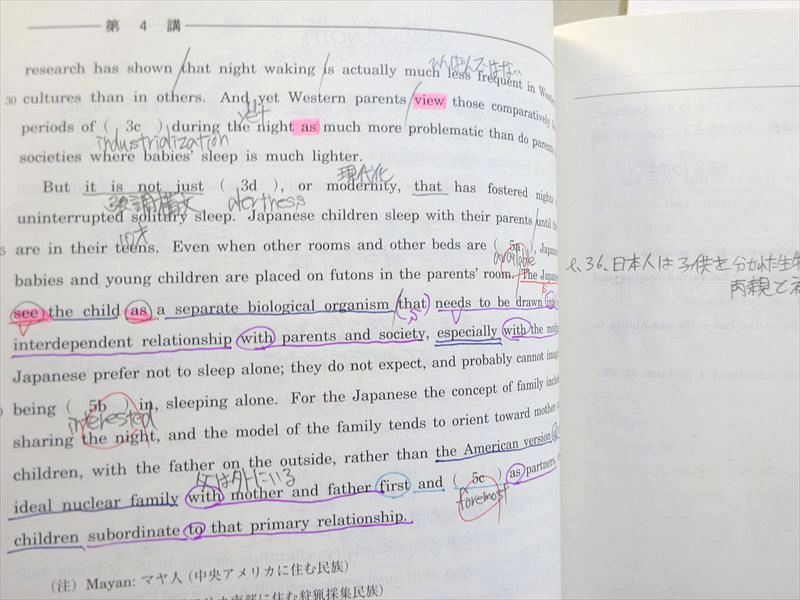 第 4 講
research has shown that night waking is actually much less frequent in
30 cultures than in others. And yet Western parents view those comparatively
yet
periods of ( 3c ) during the night as much more problematic than do parents
industrialization
societies where babies' sleep is much lighter.
現代化
But it is not just ( 3d ), or modernity, that has fostered
強調構文 alertness
uninterrupted solitary sleep. Japanese children sleep with their parents until
10才
are in their teens. Even when other rooms and other beds are ( 5a ),
available
babies and young children are placed on futons in the parents' room. The
see the child as a separate biological organism that needs to be drawn into
interdependent relationship with parents and society, especially with the
Japanese prefer not to sleep alone; they do not expect, and probably cannot
being ( 5b ) in, sleeping alone. For the Japanese the concept of family
interested
sharing the night, and the model of the family tends to orient toward mother
children, with the father on the outside, rather than the American version
父は外にいる
ideal nuclear family with mother and father first and ( 5c ) as partners,
foremost
children subordinate to that primary relationship.
(注) Mayan: マヤ人 (中央アメリカに住む民族)
に住む狩猟採集民族)
l.36. 日本人は子供を分かれた生
両親と